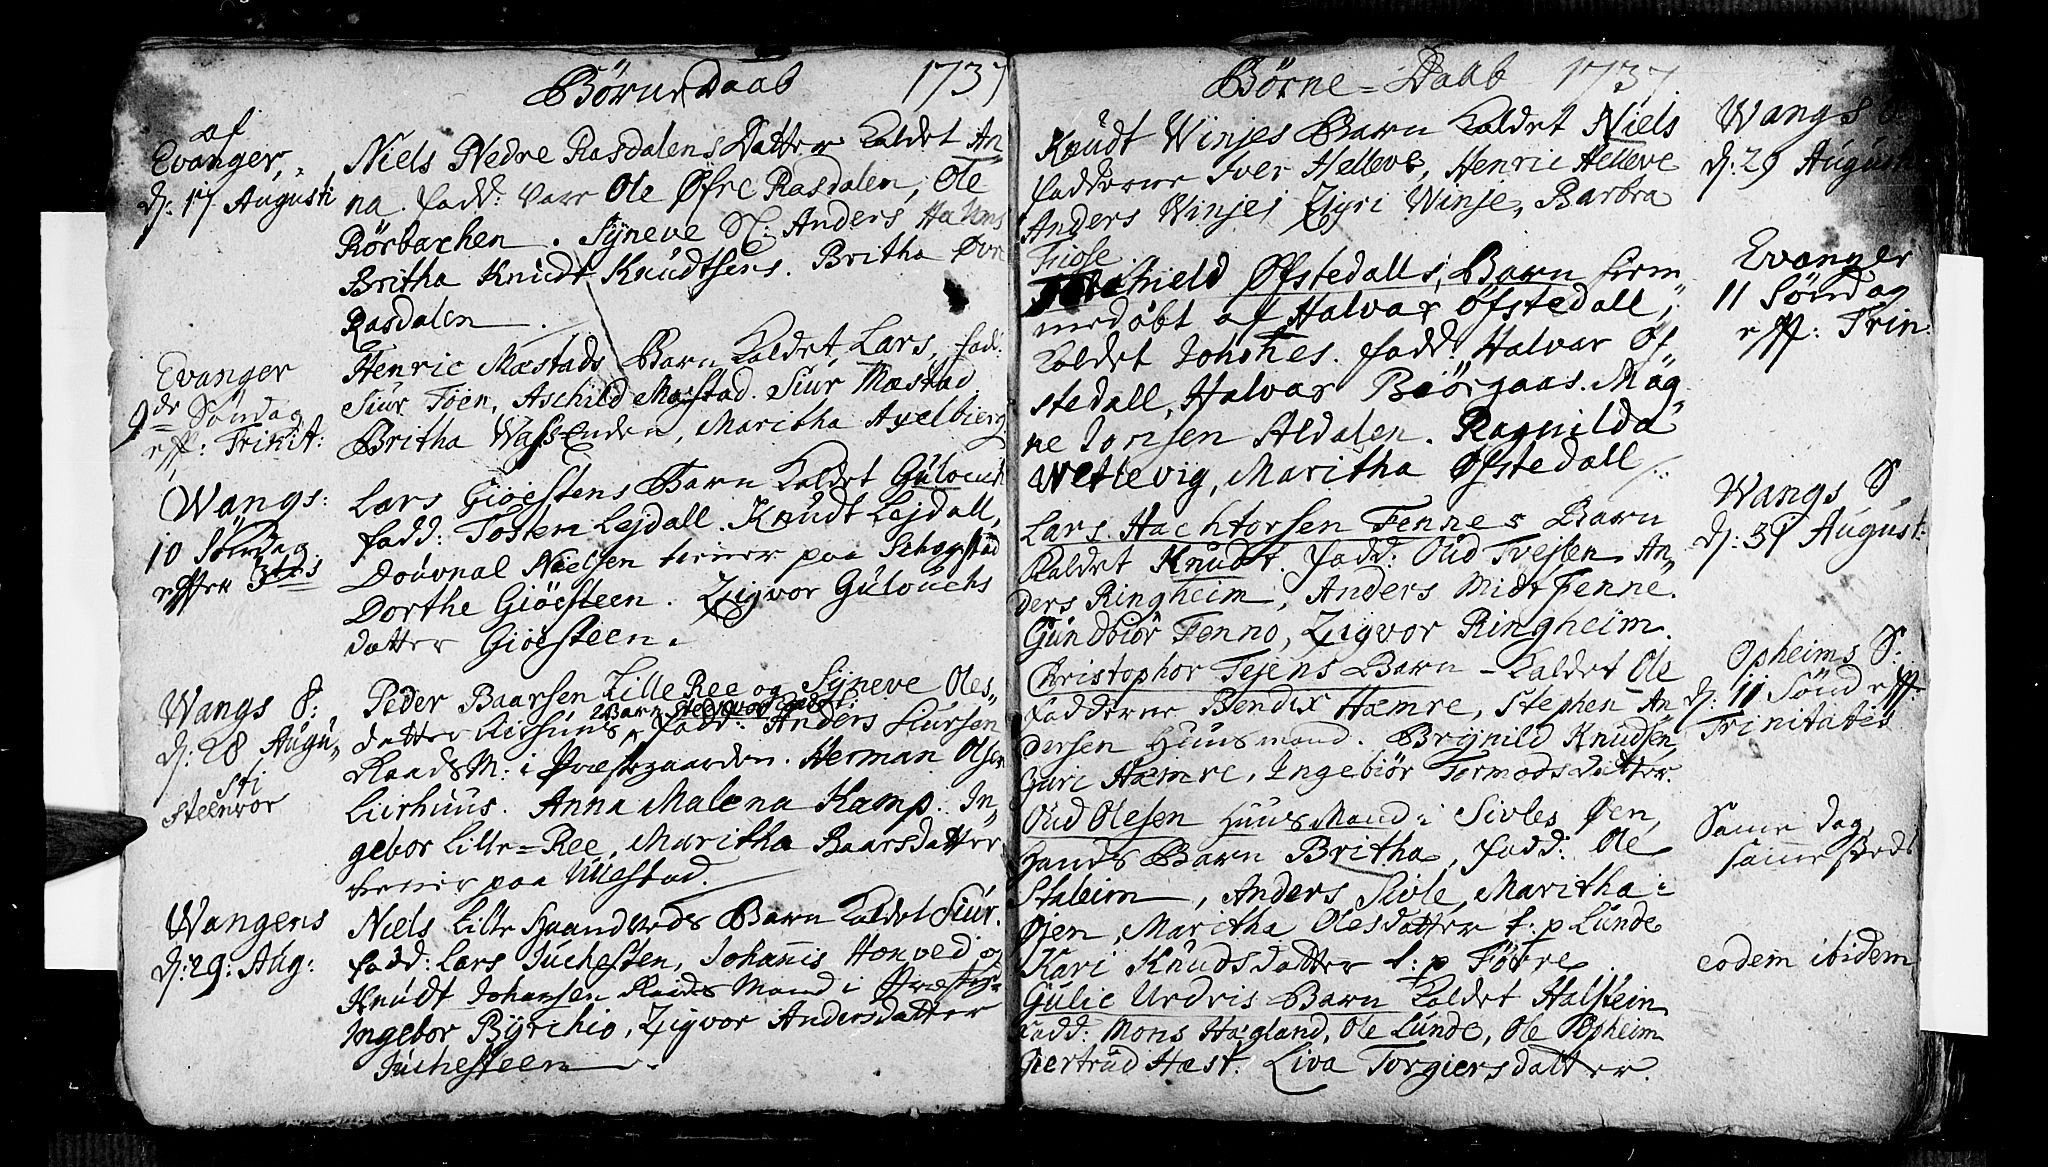 Børne Daab 1737
af
Evanger,
d: 17 Augusti
Niels Nedre Rasdalens Datter kaldet An-
na. fadd: vare Ole Øfre Rasdalen, Ole
Rörbachen. Syneve Anders
Britha Knudt Knudtsens. Britha
Rasdalen.
Evanger
9de Söndag
eff: Trinit:
Henric Mæstads Barn kaldet Lars, fad:
Siur Töen, Aschild Mæstad. Siur Mæstad.
Britha Wassenden, Maritha Axelbierg
Wangs:
10 Söndag
efter
Lars Giöestens Barn kaldet
fadd: Tosten Lejdall. Knudt Lejdall,
Nielsen tiener paa
Dorthe Giöesteen. Zigvor Gulouchs
datter Giöesteen.
Wangs S:
d: 28 Augu-
sti
Steenvor
Peder Baarsen Lille Ree og Syneve Oles-
Barn Steenvor
datter fadd: Anders Siursen
Raads M: i Præstegaarden. Herman Olsen
Lirhuus. Anna Malena Kamp. In-
gebor Lille-Ree, Maritha Baarsdatter
tiener paa
Wangens
d: 29: Aug:
Niels Lille Haandveds Barn kaldet Siur.
fadd: Lars Juchesten, Johannis Honved og
Knudt Johansen Raads Mand i
Ingebor Byrchio, Zigvor Andersdatter
Juchesteen.
Børne-Daab 1737
Knudt Winjes Barn kaldet Niels
fadderne Iver Helleve, Henric Helleve
Anders Winjes Zigri Winje, Barbra
Wangs
d: 29 Augusti
Øfstedalls Barn hiem-
medöbt af Halvar Øfstedall,
kaldet Johanes. fadd: Halvar Øf-
stedall, Halvar Biörgaas. Mag-
ne Jonsen Aldalen. Ragnilda
Wetlevig, Maritha Øfstedall
Evanger
11 Söndag
eff: Trin:
Lars Hachtorsen Fennes Barn
Kaldet Knudt. fadd: Oud Tvejten An-
ders Ringheim, Anders Midt Fenne.
Gundbiör Fenno, Zigvor Ringheim.
Wangs S.
d: 31 August:
Christophor Tejens Barn kaldet Ole
Fadderne Bendix Hæmre, Stephen An-
dersen Huusmand. Brynild Knudsen,
Guri Hæmre, Ingebiör Tormodsdatter.
Opheims S:
d: 11 Sönd eff:
Trinitatis
Oud Olesen Huus Mand i Sivles Øen,
Hands Barn Britha, fadd: Ole
Staleim, Anders Sivle, Maritha i
Øjen, Maritha Olesdatter t: p Lunde
Kari Knudsdatter t: p Förre.
Same dag,
samme stæds
Gulic Urdris Barn kaldet Halstein
Fadd: Mons Hægland, Ole Lunde, Ole Opheim
Giertrud Hæst. Liva Torgiersdatter.
eodem ibidem